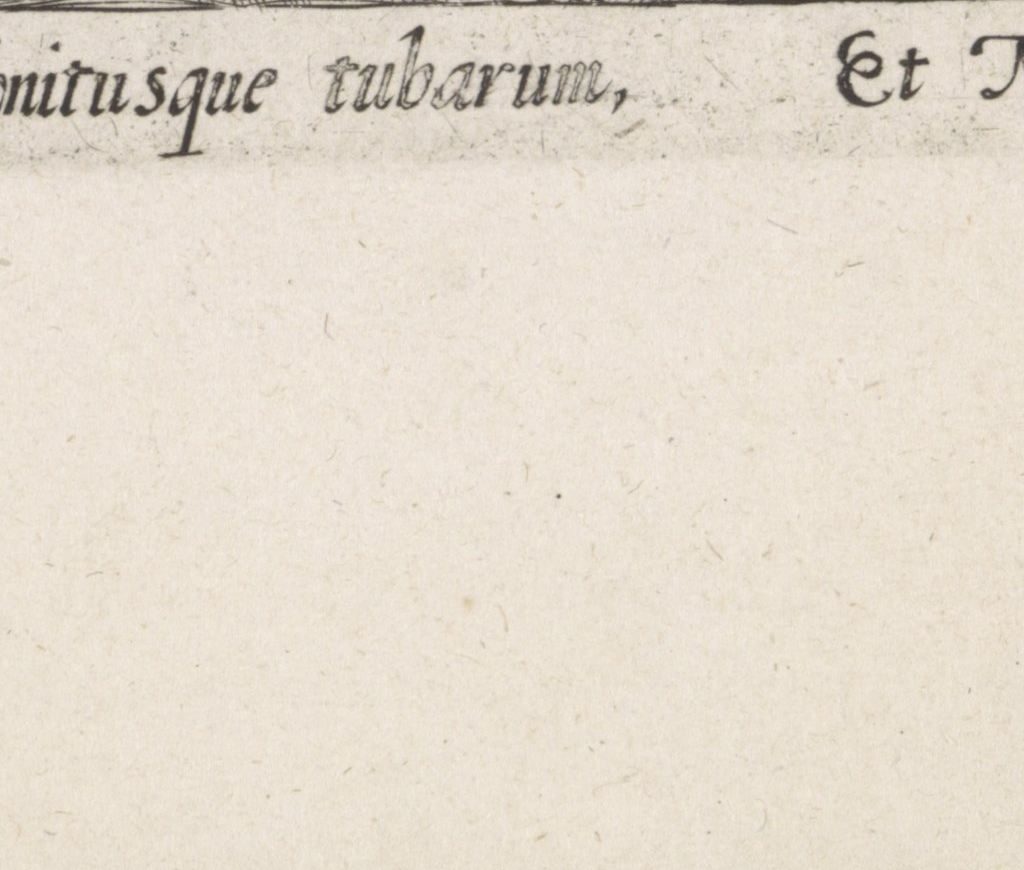 onitusque tubarum, Et